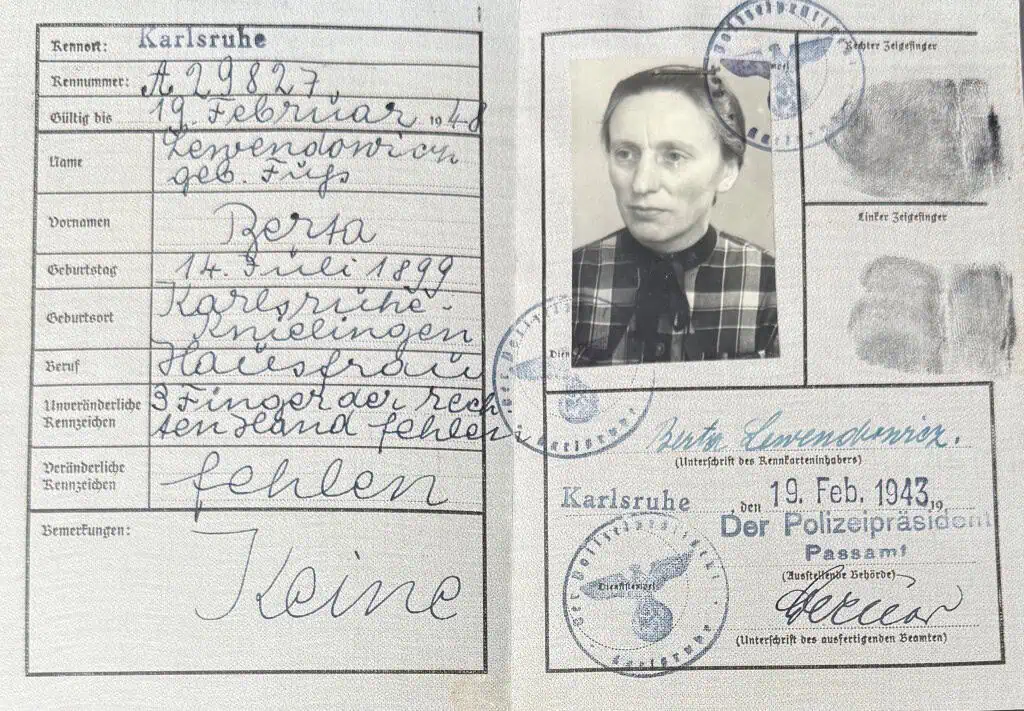 Kennort: Karlsruhe
Kennummer: A 29827.
Gültig bis 19. Februar 1948
Name Lewendowicz
geb. Fuchs
Vornamen Berta
Geburtstag 14. Juli 1899
Geburtsort Karlsruhe-
Knielingen
Beruf Hausfrau
Unveränderliche Kennzeichen 3 Finger der rech
ten Hand fehlen
Veränderliche Kennzeichen fehlen
Bemerkungen:
Keine
Rechter Zeigefinger
Linker Zeigefinger
Der Polizeipräsident
Karlsruhe
Berta Lewendowicz.
(Unterschrift des Kennkarteninhabers)
Karlsruhe, den 19. Feb. 1943 19
Der Polizeipräsident
Passamt
(Ausstellende Behörde)
Dienststempel
Der Polizeipräsident
Karlsruhe
(Unterschrift des ausfertigenden Beamten)